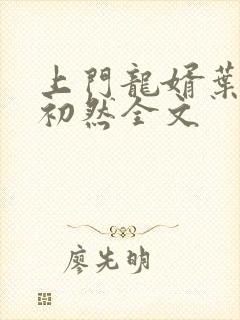 上門龍婿葉
初然全文
廖先明